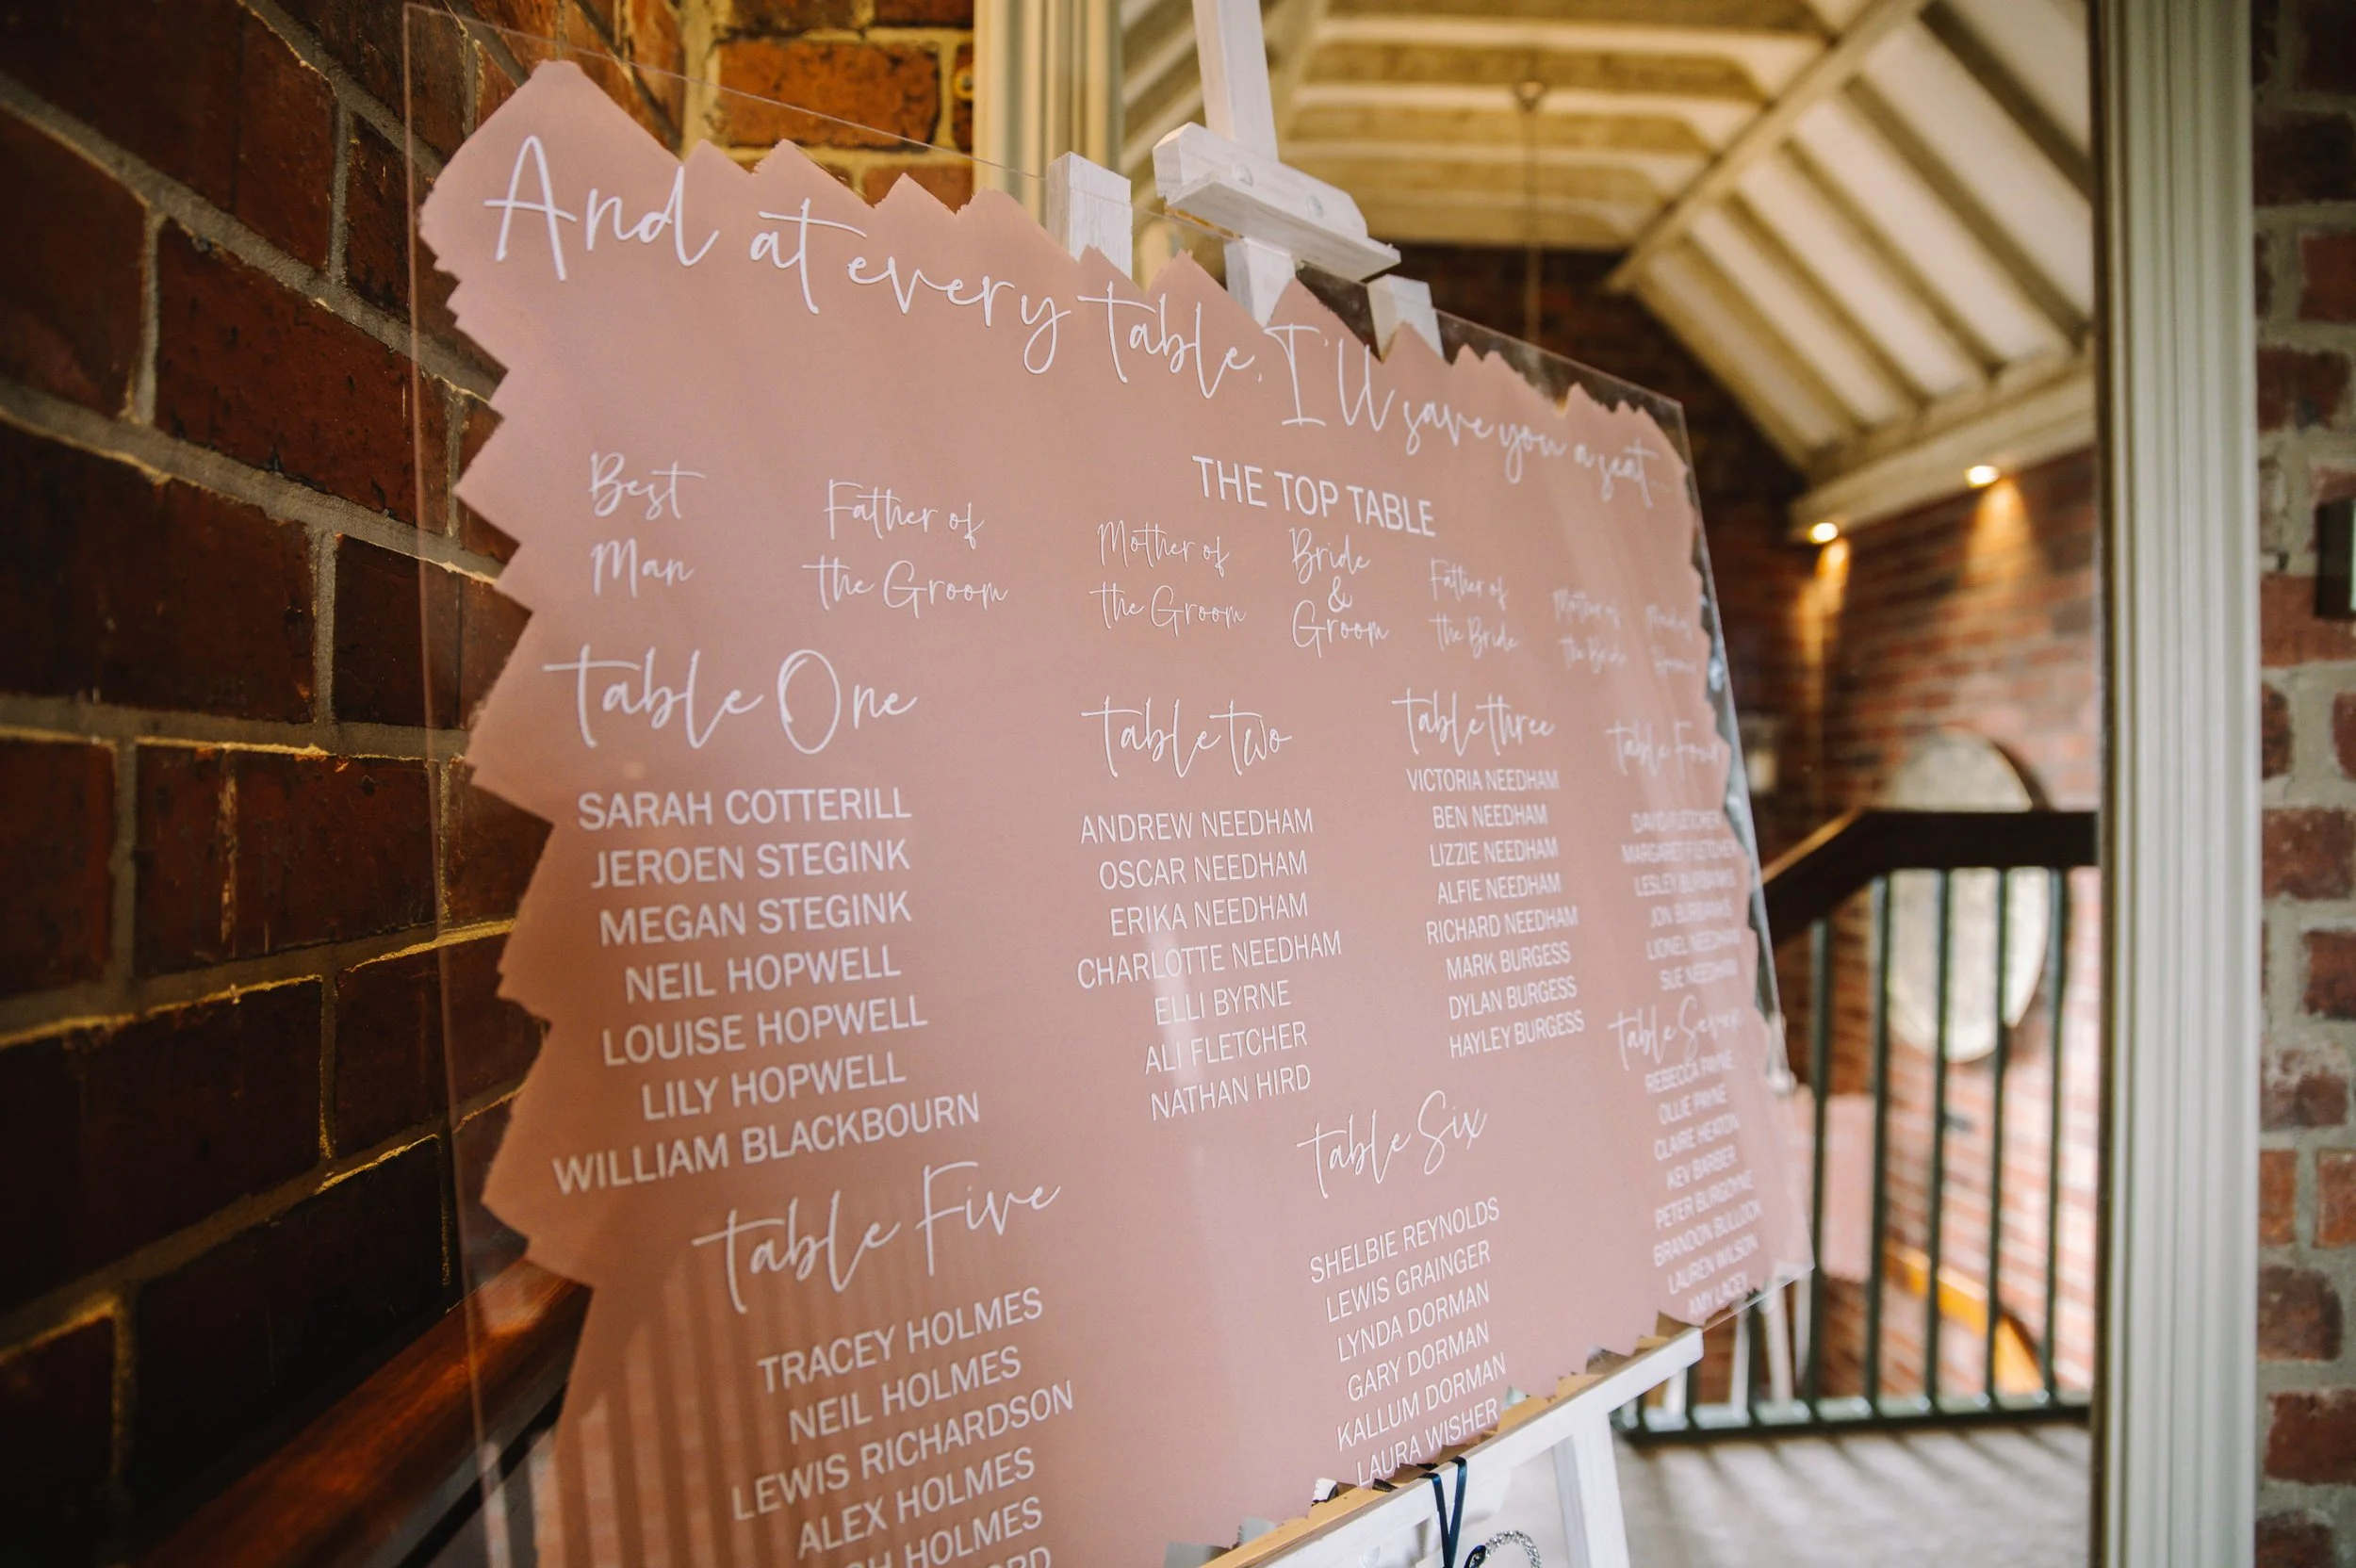 And at every table, I'll save you a seat...
THE TOP TABLE
Best
Man
Father of
the Groom
Mother of
the Groom
Bride
&
Groom
Father of
the Bride
Mother of
the Bride
table One
SARAH COTTERILL
JEROEN STEGINK
MEGAN STEGINK
NEIL HOPWELL
LOUISE HOPWELL
LILY HOPWELL
WILLIAM BLACKBOURN
table two
ANDREW NEEDHAM
OSCAR NEEDHAM
ERIKA NEEDHAM
CHARLOTTE NEEDHAM
ELLI BYRNE
ALI FLETCHER
NATHAN HIRD
table three
VICTORIA NEEDHAM
BEN NEEDHAM
LIZZIE NEEDHAM
ALFIE NEEDHAM
RICHARD NEEDHAM
MARK BURGESS
DYLAN BURGESS
HAYLEY BURGESS
table Four
DAVID FLETCHER
MARGARET FLETCHER
LESLEY BURBANKS
JON BURBANKS
LIONEL NEEDHAM
SUE NEEDHAM
table Five
TRACEY HOLMES
NEIL HOLMES
LEWIS RICHARDSON
ALEX HOLMES
HOLMES
table Six
SHELBIE REYNOLDS
LEWIS GRAINGER
LYNDA DORMAN
GARY DORMAN
KALLUM DORMAN
LAURA WISHER
table Seven
REBECCA PAYNE
OLLIE PAYNE
CLAIRE HEATON
KEV BARBER
PETER BURGOYNE
BRANDON BULLOCK
LAUREN WILSON
AMY LACEY